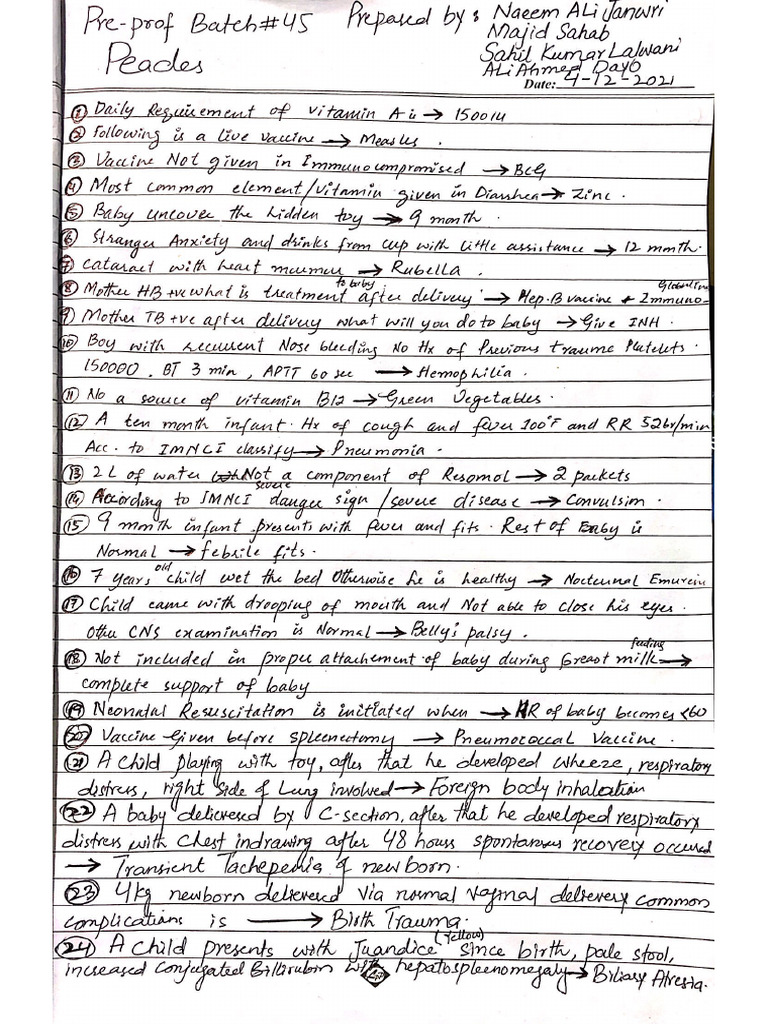 Pre-prof Batch#45 Prepared by: Naeem ALi Janwri
Majid Sahab
Peades Sahil Kumar Lalwani
ALi Ahmed Dayo
Date: 4-12-2021
① Daily Requirement of vitamin A is → 1500 IU
② Following is a live vaccine → Measles.
③ Vaccine Not given in Immunocompromised → BCG
④ Most common element/vitamin given in Diarrhea → Zinc.
⑤ Baby uncover the hidden toy → 9 month.
⑥ Stranger Anxiety and drinks from cup with little assistance → 12 month.
⑦ Cataract with heart murmur → Rubella.
⑧ Mother HB +ve what is treatment to baby after delivery → Hep.B vaccine + Immuno-Globulin
⑨ Mother TB +ve after delivery what will you do to baby → Give INH.
⑩ Boy with recurrent Nose bleeding No Hx of Previous trauma Platelets
150000, BT 3 min, APTT 60 sec → Hemophilia.
⑪ No a source of vitamin B12 → Green Vegetables.
⑫ A ten month infant Hx of cough and fever 100°F and RR 52br/min
Acc. to IMNCI classify → Pneumonia.
⑬ 2L of water Not a component of Resomol → 2 packets
⑭ According to IMNCI severe danger sign/severe disease → Convulsion.
⑮ 9 month infant presents with fever and fits. Rest of Baby is
Normal → febrile fits.
⑯ 7 years old child wet the bed otherwise he is healthy → Nocturnal Enuresis
⑰ Child came with drooping of mouth and Not able to close his eyes.
Other CNS examination is Normal → Belly's palsy.
⑱ Not included in proper attachement of baby during breast milk feeding →
complete support of baby
⑲ Neonatal Resuscitation is initiated when → HR of baby becomes <60
⑳ Vaccine Given before spleenectomy → Pneumococcal Vaccine.
㉑ A Child playing with toy, after that he developed wheeze, respiratory
distress, right side of Lung involved → Foreign body inhalation
㉒ A baby delivered by C-section, after that he developed respiratory
distress with chest indrawing after 48 hours spontaneous recovery occured
→ Transient Tachepenia of newborn.
㉓ 4kg newborn delivered via normal vaginal delivery common
complications is → Birth Trauma.
㉔ A Child presents with Juandice (Yellow) since birth, pale stool,
increased conjugated Billirubin with hepatospleenomegaly → Biliary Atresia.